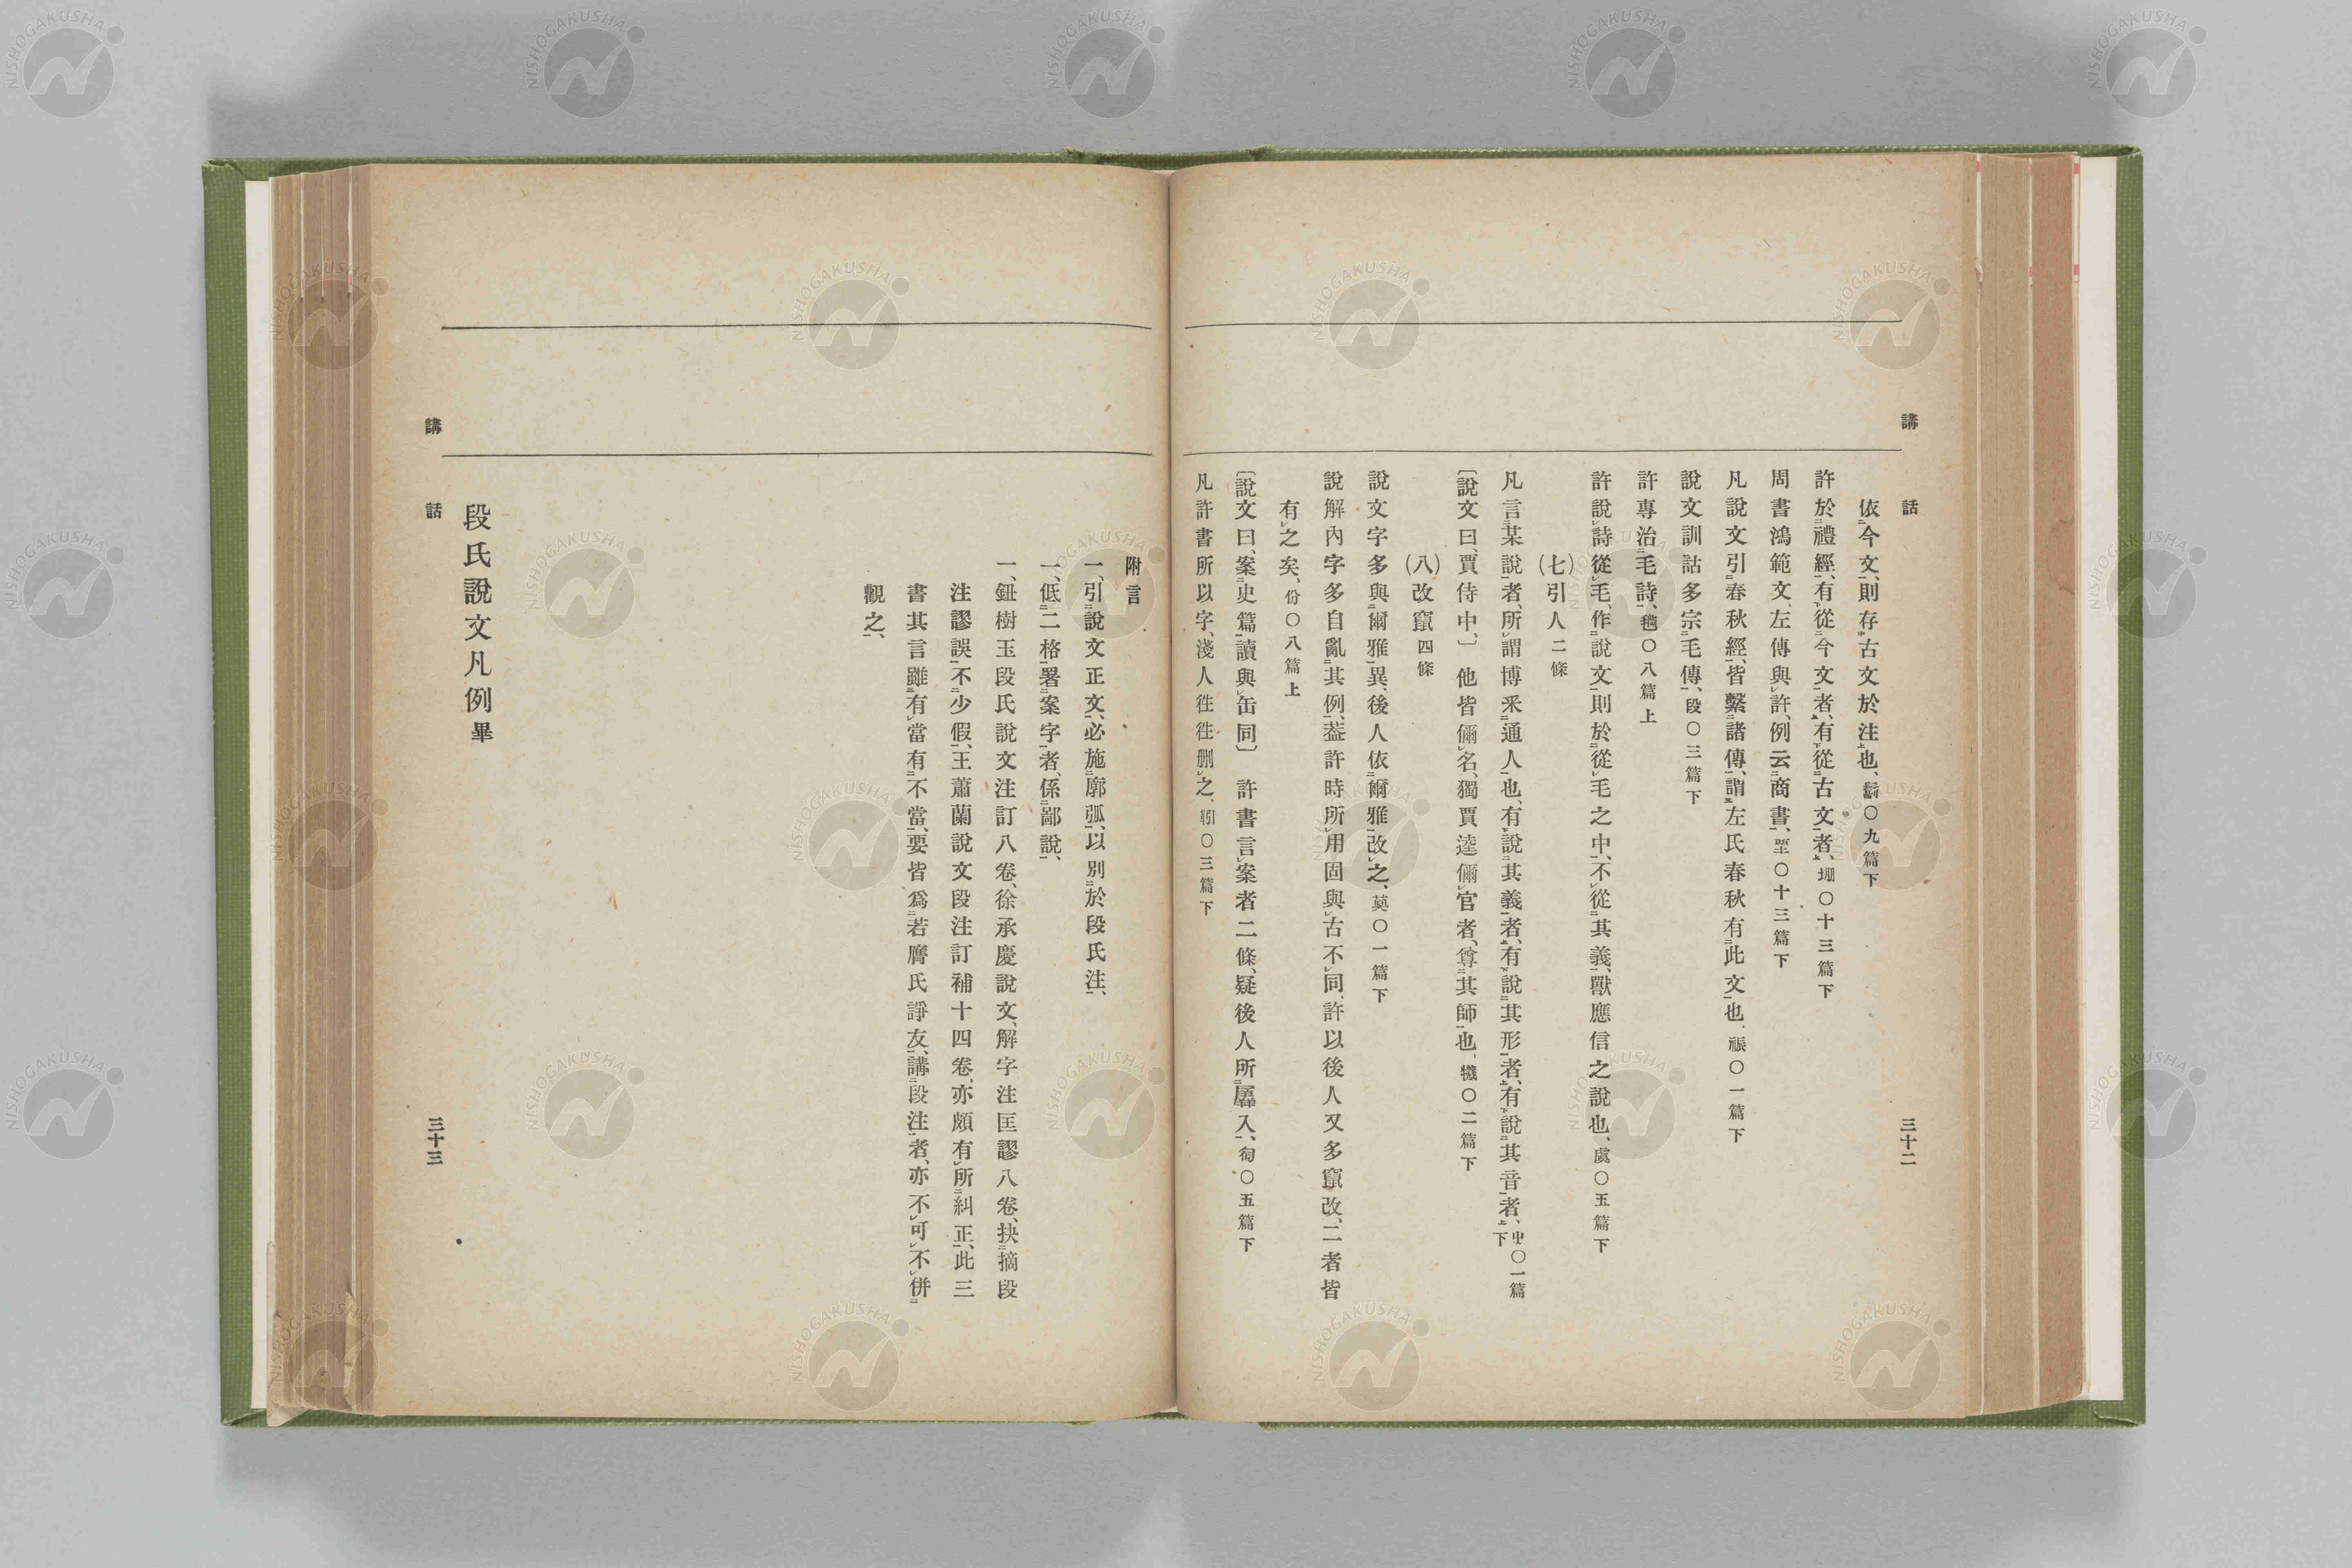 講話 三十二
依今文、則存古文於注也、䰂〇九篇下
許於禮經、有從今文者、有從古文者、堋〇十三篇下
周書鴻範文、左傳與許、例云商書、垔〇十三篇下
凡說文引春秋經、皆繫諸傳、謂左氏春秋有此文也、祳〇一篇下
說文訓詁多宗毛傳、段〇三篇下
許專治毛詩、毨〇八篇上
許說詩從毛、作說文則於從毛之中、不從其義、獸應信之說也、虞〇五篇下
(七)引人二條
凡言某說者、所謂博釆通人也、有說其義者、有說其形者、有說其音者、屮〇一篇下
〔說文曰、賈侍中、〕 他皆偁名、獨賈逵偁官者、尊其師也、犧〇二篇下
(八)改竄四條
說文字多與爾雅異、後人依爾雅改之、蓂〇一篇下
說解內字多自亂其例、葢許時所用固與古不同、許以後人又多竄改、二者皆
有之矣、份〇八篇上
〔說文曰、案史篇讀與缶同〕 許書言案者二條、疑後人所羼入、匋〇五篇下
凡許書所以字、淺人往往刪之、㧈〇三篇下
附言
一、引說文正文、必施廓弧、以別於段氏注、
一、低二格署案字者、係鄙說、
一、鈕樹玉段氏說文注訂八卷、徐承慶說文、解字注匡謬八卷、抉摘段
注謬誤、不少假、王蕭蘭說文段注訂補十四卷、亦頗有所糾正、此三
書其言雖有當有不當、要皆爲若膺氏諍友、講段注者、亦不可不併
觀之、
段氏說文凡例畢
講話 三十三